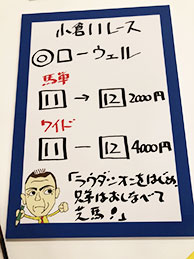 小倉11レース
◎ローウェル
馬単
11 → 12 2000円
ワイド
11 － 12 4000円
「ラウダシオンをはじめ、
兄弟はおしなべて
芝馬!」